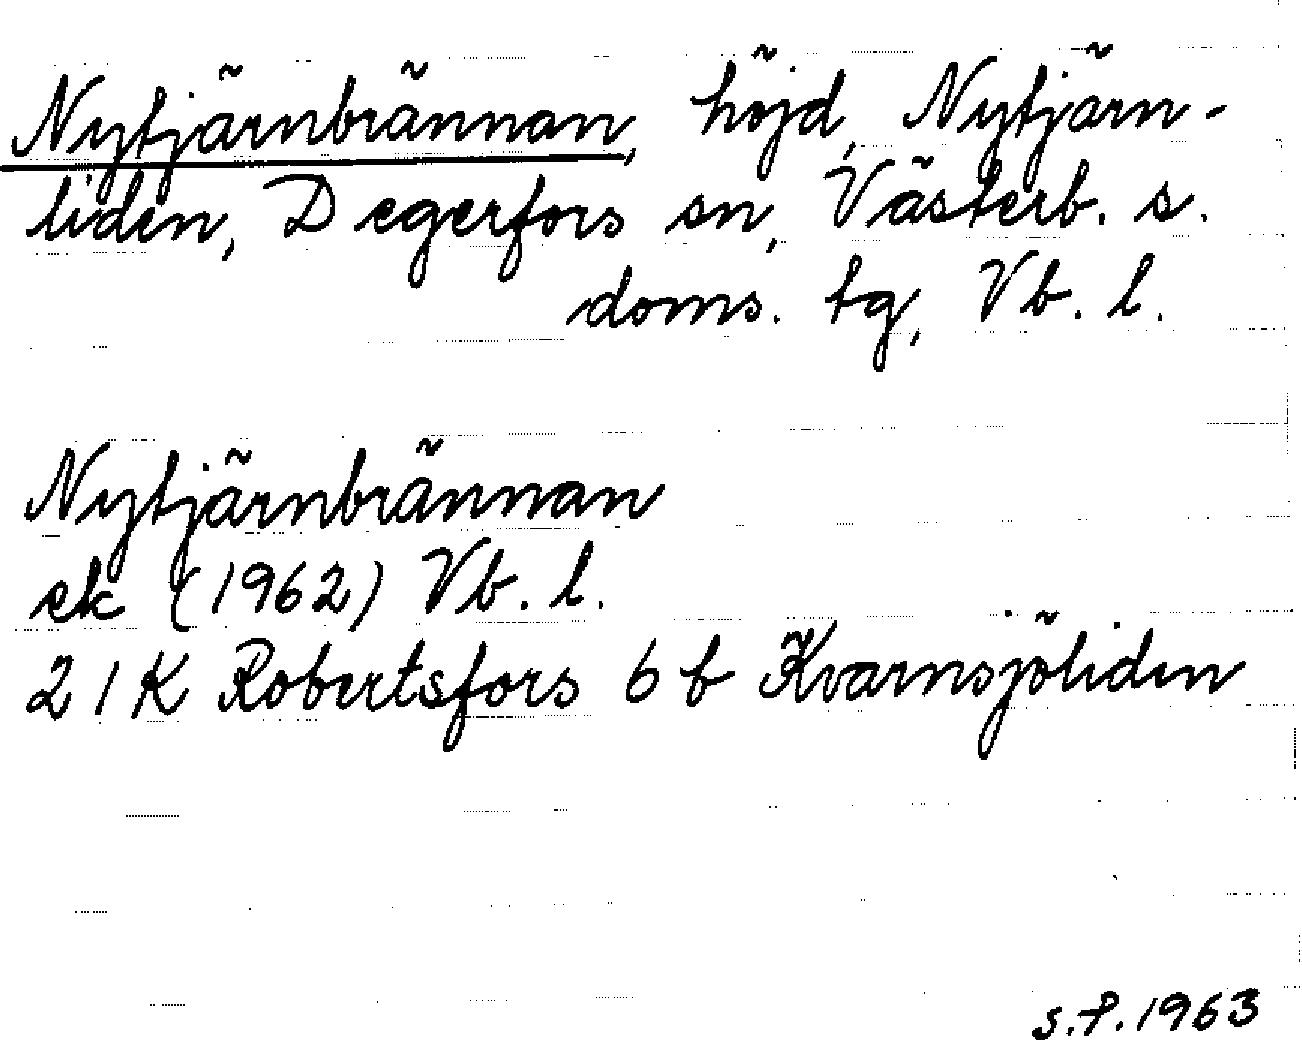 Nytjärnbrännan, höjd, Nytjärn-
liden, Degerfors sn, Västerb. s.
doms. tg, Vb. l.
Nytjärnbrännan
ek (1962) Vb. l.
21K Robertsfors 6b Kvarnsjöliden
S.P. 1963